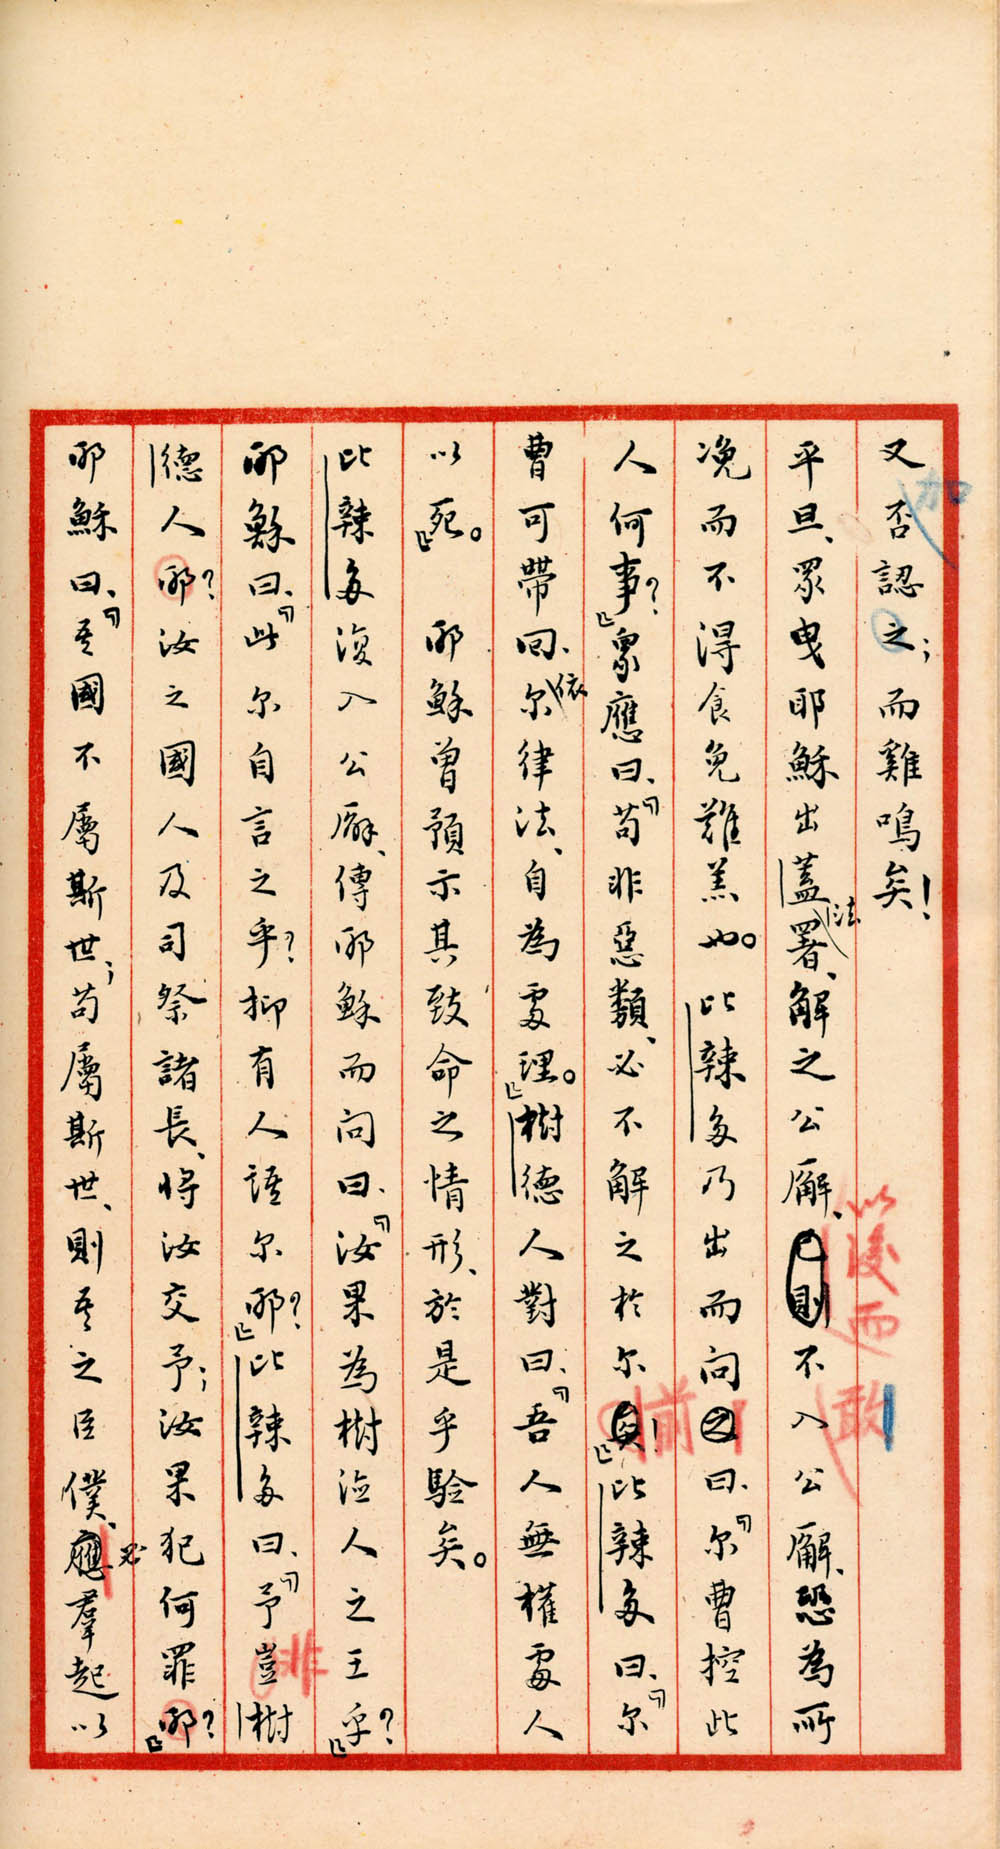 又否認之；而雞鳴矣！
加
平旦、眾曳耶穌出蓋署、解之公廨、己則不入公廨、恐為所
法
以後而
敢
浼而不得食免難羔也。比辣多乃出而问之曰、『尔曹控此
人何事？』眾應曰、『苟非惡類、必不解之於尔貟！』比辣多曰、『尔
前
曹可帶回、尔律法、自為處理。』樹德人對曰、『吾人無權處人
依
以死。』耶穌曾預示其致命之情形、於是乎驗矣。
比辣多復入公廨、傳耶穌而问曰、『汝果為樹德人之王乎？』
耶穌曰、『此尔自言之乎？抑有人語尔耶？』比辣多曰、『予豈樹
非
德人耶？汝之國人及司祭諸長、将汝交予；汝果犯何罪耶？』
耶穌曰、『吾國不屬斯世；苟屬斯世、則吾之臣僕、應羣起以
必